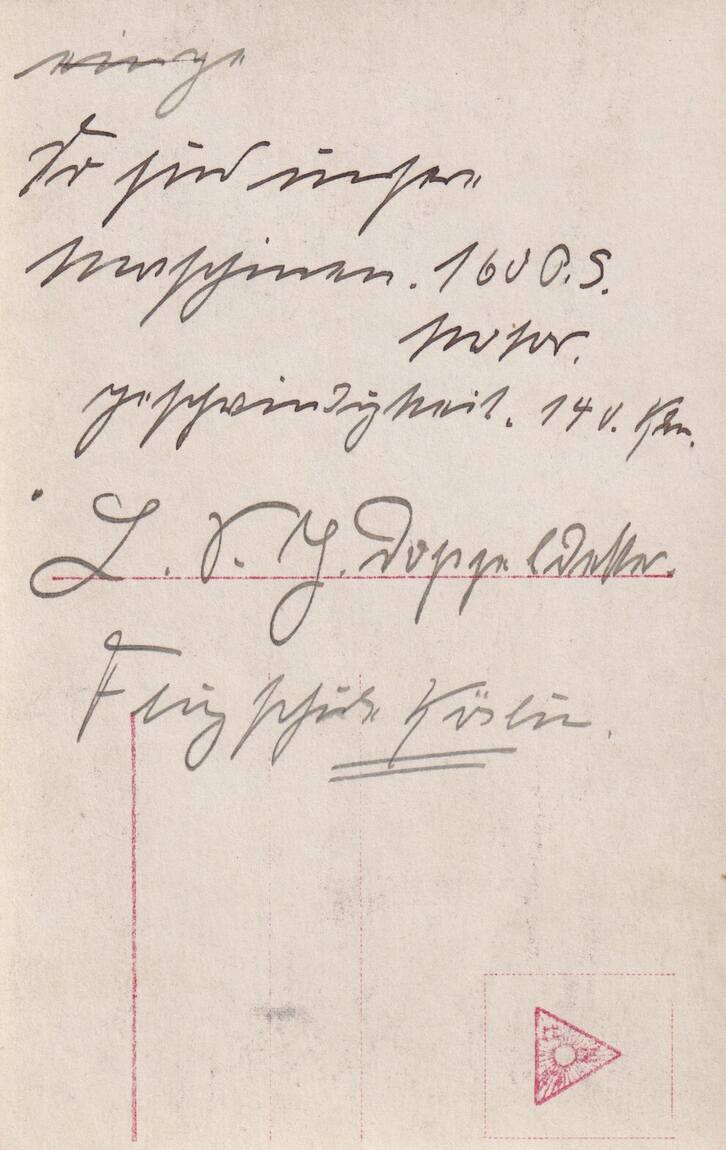 einige
So sind unsere
Maschinen. 160 P.S.
Motor.
geschwindigkeit. 140. Km.
L. V. G. Doppeldekker.
Flugschule Köslin.